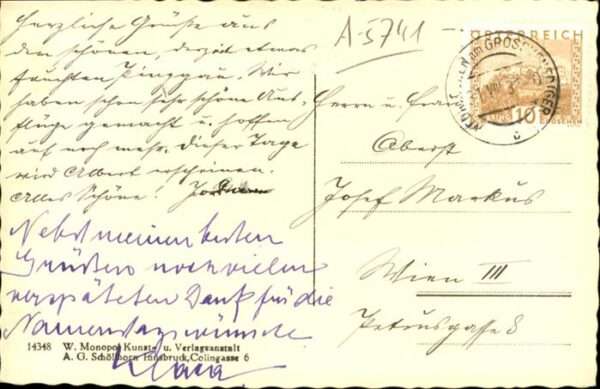 Herzliche Grüße aus
den schönen, derzeit etwas
feuchten Pinzgau. Wir
haben schon sehr schöne Aus-
flüge gemacht u. hoffen
auf noch mehr. Dieser Tage
wird Albert erscheinen.
Alles Schöne!
Nebst meinen besten
Grüßen noch vielen
verspäteten Dank für die
Namenstagswünsche
14348 W. Monopol Kunst- u. Verlagsanstalt
A. G. Schöllhorn Innsbruck, Colingasse 6
A-5741
ÖSTERREICH
10
AM GROSSVENEDIGER
Herrn u. Frau
Oberst
Josef Markus
Wien III
Petrusgasse 8